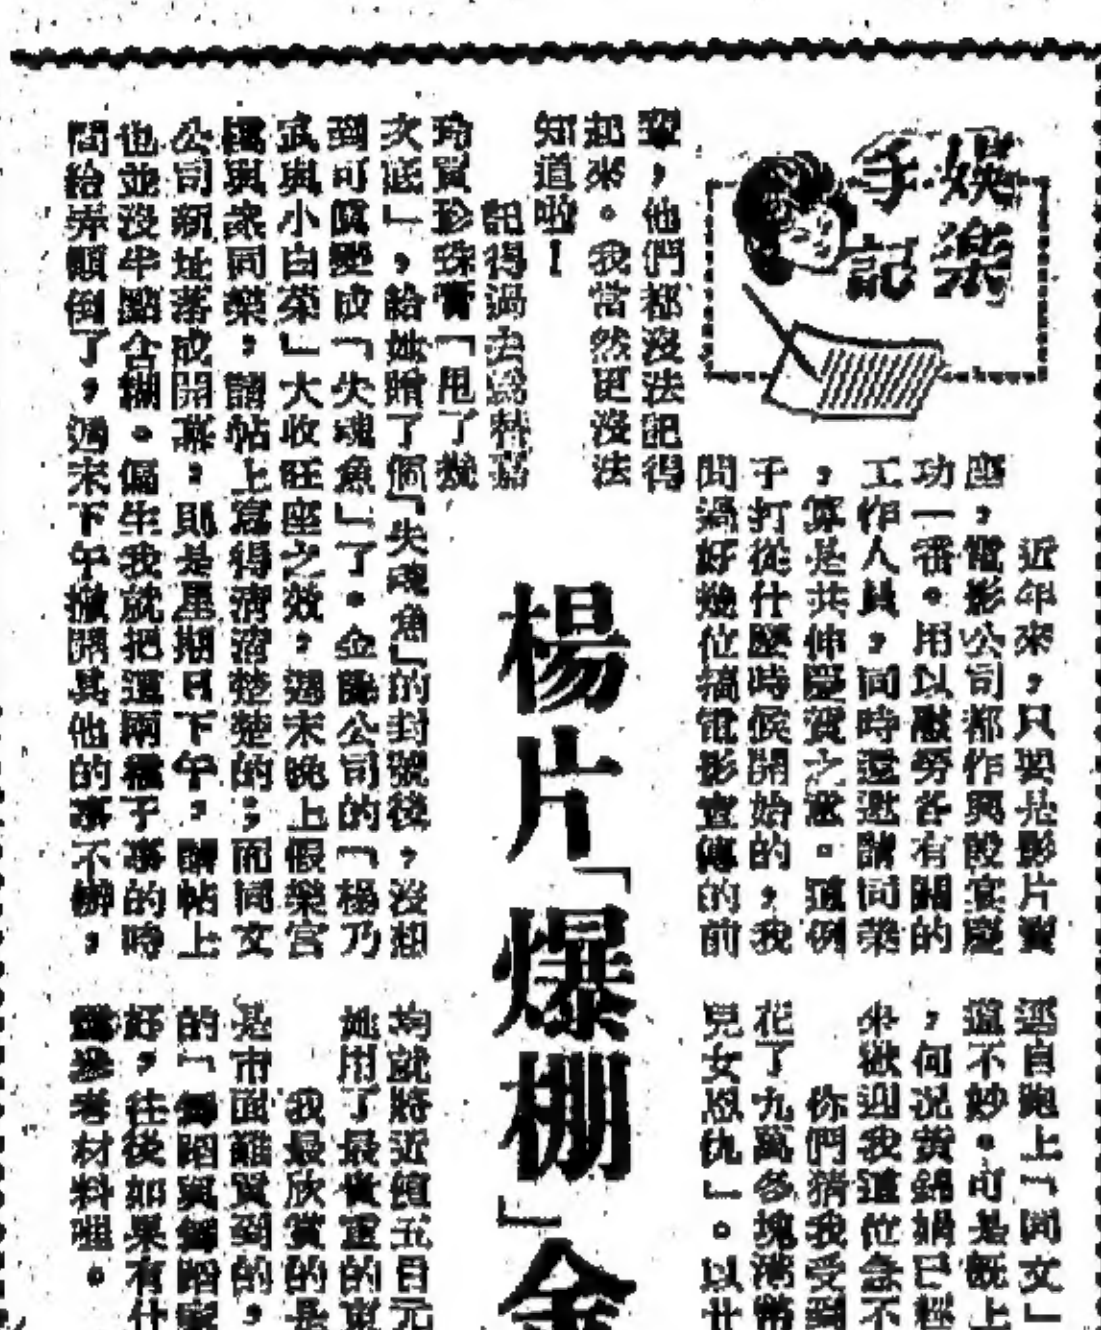 娛樂
手記
楊片「爆棚」金
近年來，只要是影片賣
座，電影公司都作興設宴慶
功一番。用以慰勞各有關的
工作人員，同時還邀請同業
，算是共伸慶賀之意。這例
子打從什麼時候開始的，我
問過好幾位搞電影宣傳的前
輩，他們都沒法記得
起來。我當然更沒法
知道啦！
記得過去為
玲買珍珠膏「甩了幾
次底」，給她贈了個「失魂魚」的封號後，沒想
到可真變成「失魂魚」了。金 公司的「楊乃
武與小白菜」大收旺座之效，週末晚上假樂宮
與衆同樂，請帖上寫得清清楚楚的；而同文
公司新址落成開幕，則是星期日下午，請帖上
也並沒半點含糊。偏生我就把這兩檔子事的時
間給弄顛倒了，週末下午撇開其他的事不辦，
逕自跑上「同文」
道不妙。可是既上
，何況黃錦娟已經
來歡迎我這位急不
你們猜我受到
花了九萬多塊港幣
兒女恩仇」。以廿
均就將近 五百元
她用了最貴重的東
我最欣賞的是
是市面難買到的，
的「舞蹈與舞蹈家
好，往後如果有什
參考材料喱。